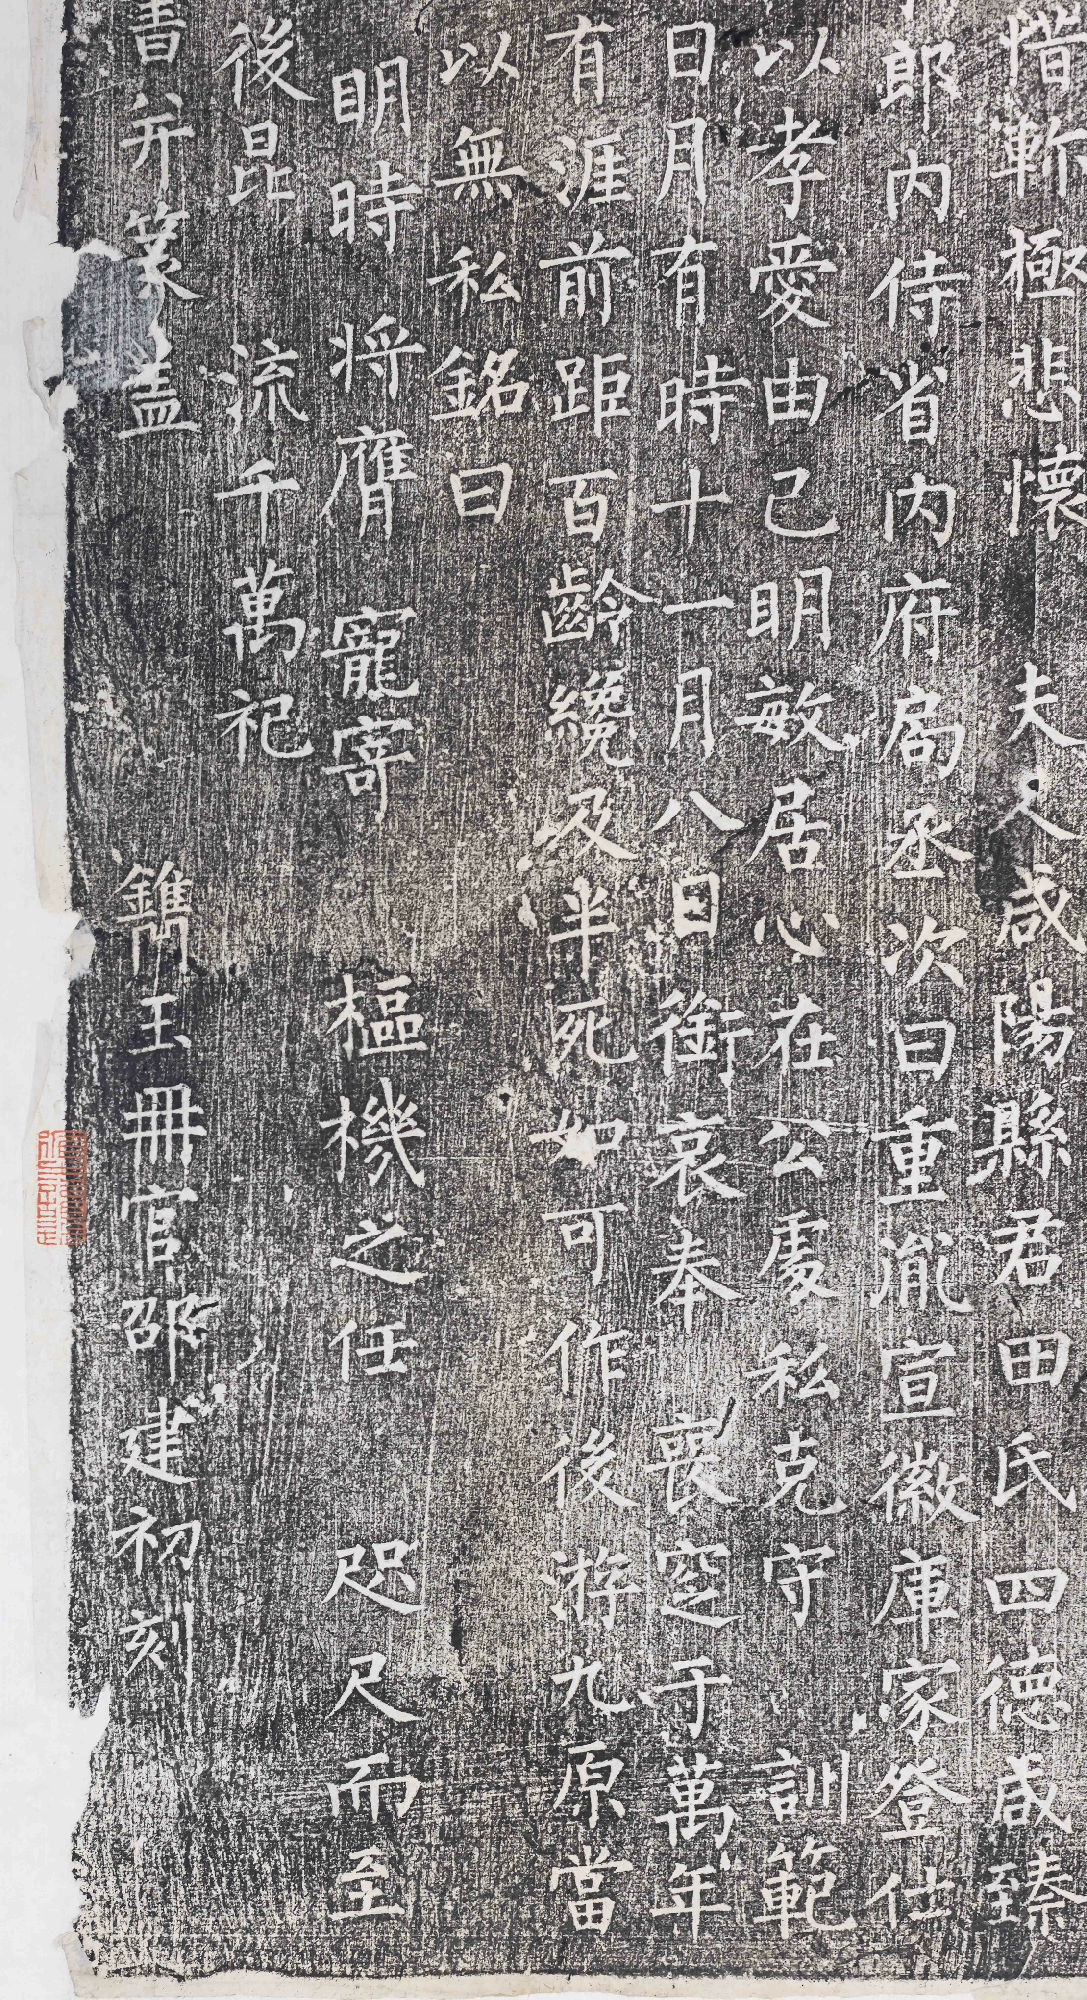 惜斬極悲懷　夫人咸陽縣君田氏四德咸臻
郎内侍省内府局丞次曰重胤宣徽庫家登仕
以孝愛由己明敏居心在公處私克守　訓範
日月有時十一月八日銜哀奉喪窆于萬年
有涯前距百齡纔及半死如可作後游九原當
以無私銘曰
明時　將膺　寵寄　樞機之任　咫尺而至
後昆　流千萬祀
書并篆蓋　鐫玉冊官邵建初刻